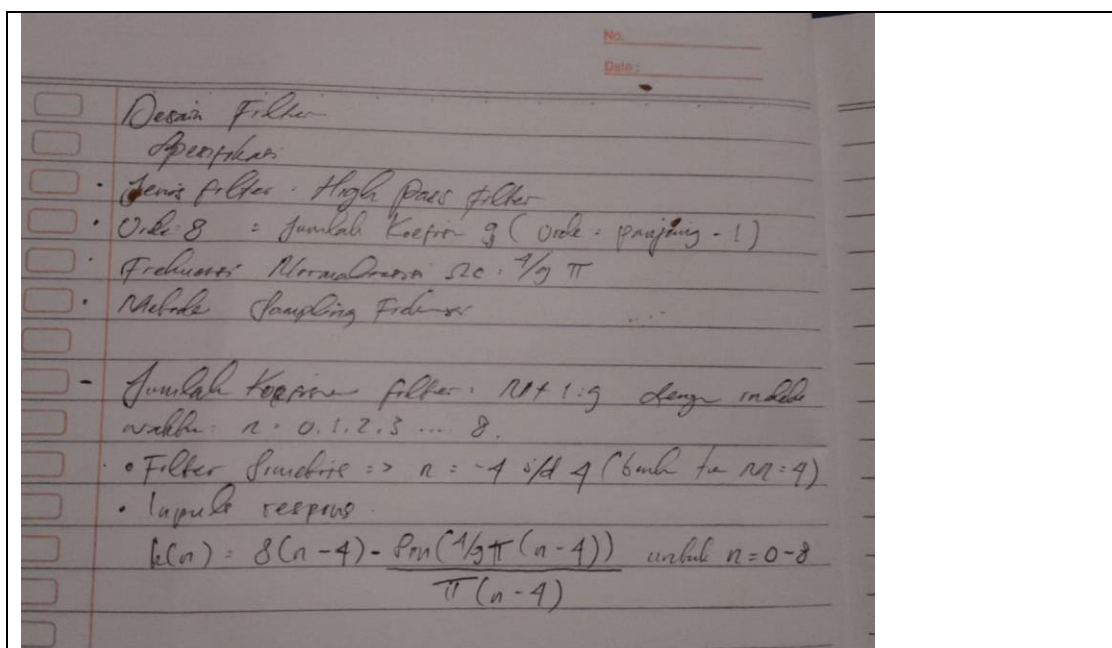 No.
Date :
Desain Filter
Spesifikasi
• Jenis filter : High Pass Filter
• Orde: 8 = Jumlah Koefisien 9 (Orde = panjang - 1)
• Frekuensi Normalisasi Ωc = 4/9 π
• Metode Sampling Frekuensi
- Jumlah Koefisien filter : M+1=9 dengan indeks
waktu: n = 0,1,2,3 ... 8.
• Filter Simetris => n = -4 s/d 4 (M=4)
• Impuls respons
h(n) = δ(n-4) - Sin(4/9π(n-4)) / π(n-4) untuk n=0-8